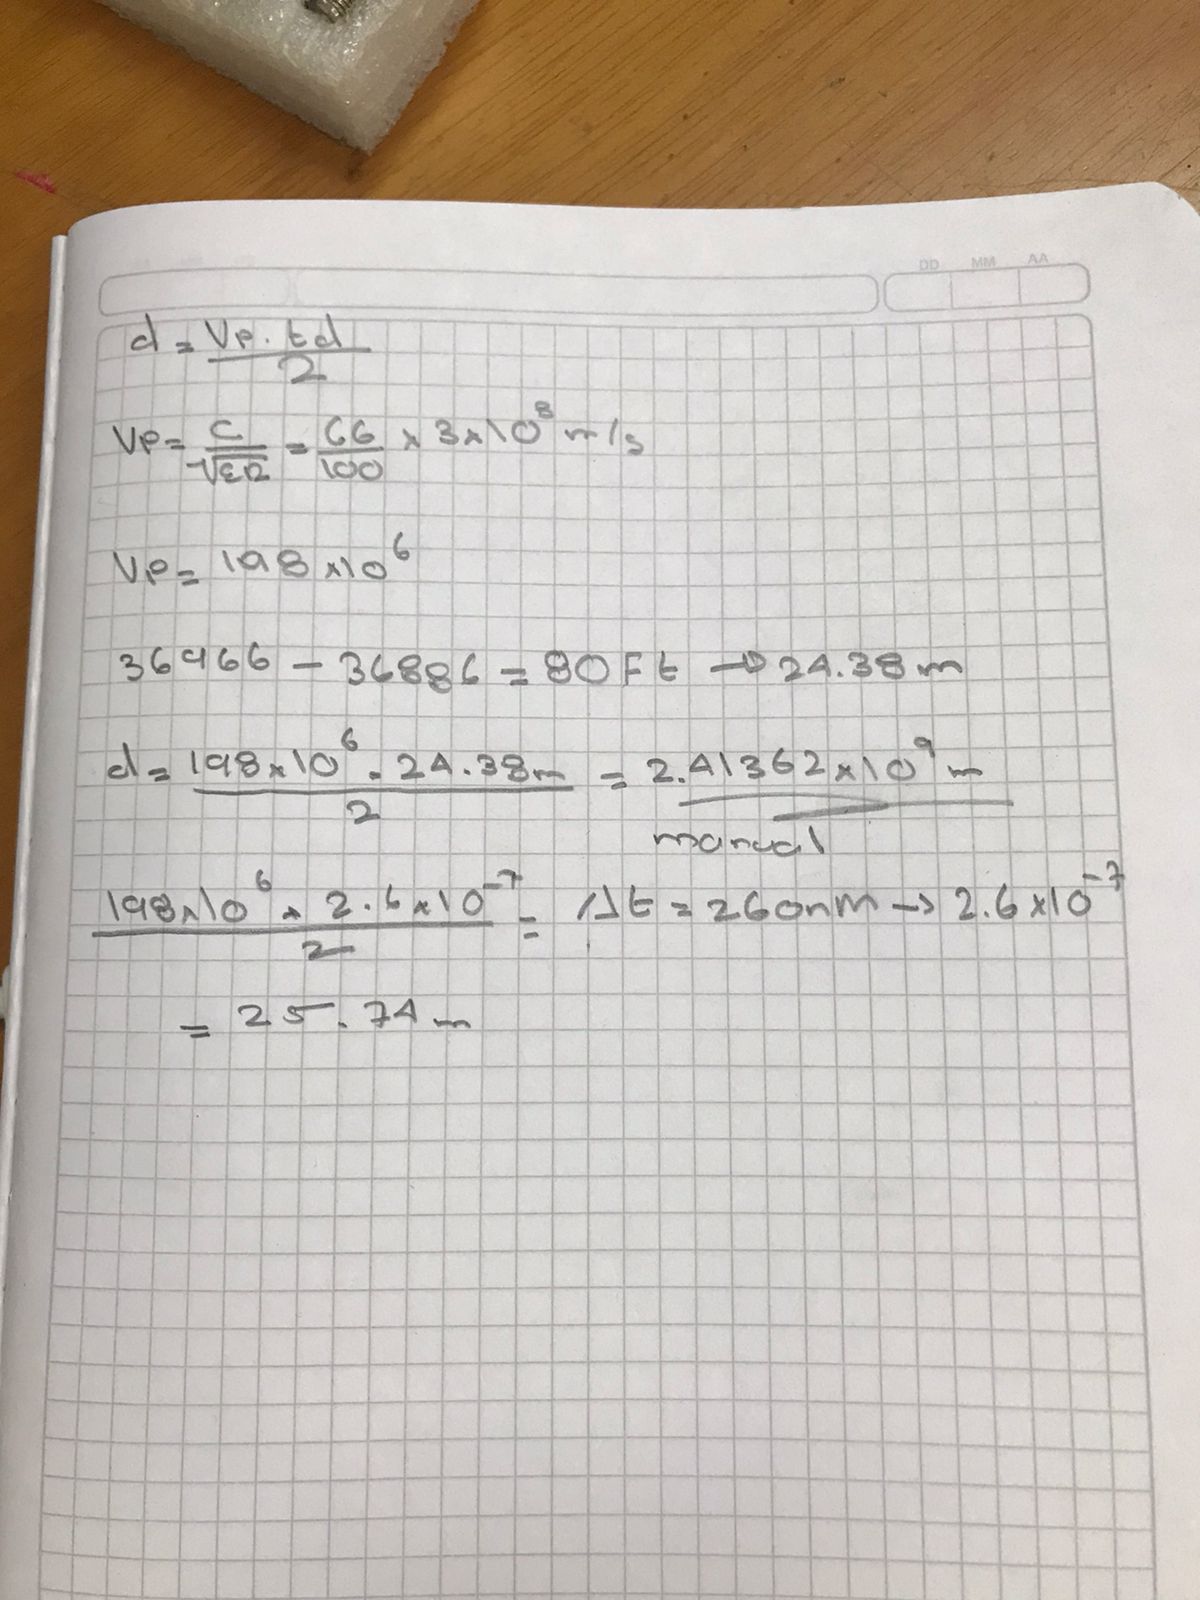 DD MM AA
d = Vp. td / 2
Vp = C / √ER = 66 / 100 × 3×10^8 m/s
Vp = 198 ×10^6
36966 − 36886 = 80 Ft → 24.38 m
d = 198×10^6 . 24.38m / 2 = 2.41362×10^9 m
manual
198×10^6 × 2.6×10^-7 / 2 = Δt = 260nm → 2.6×10^-7
= 25.74 m